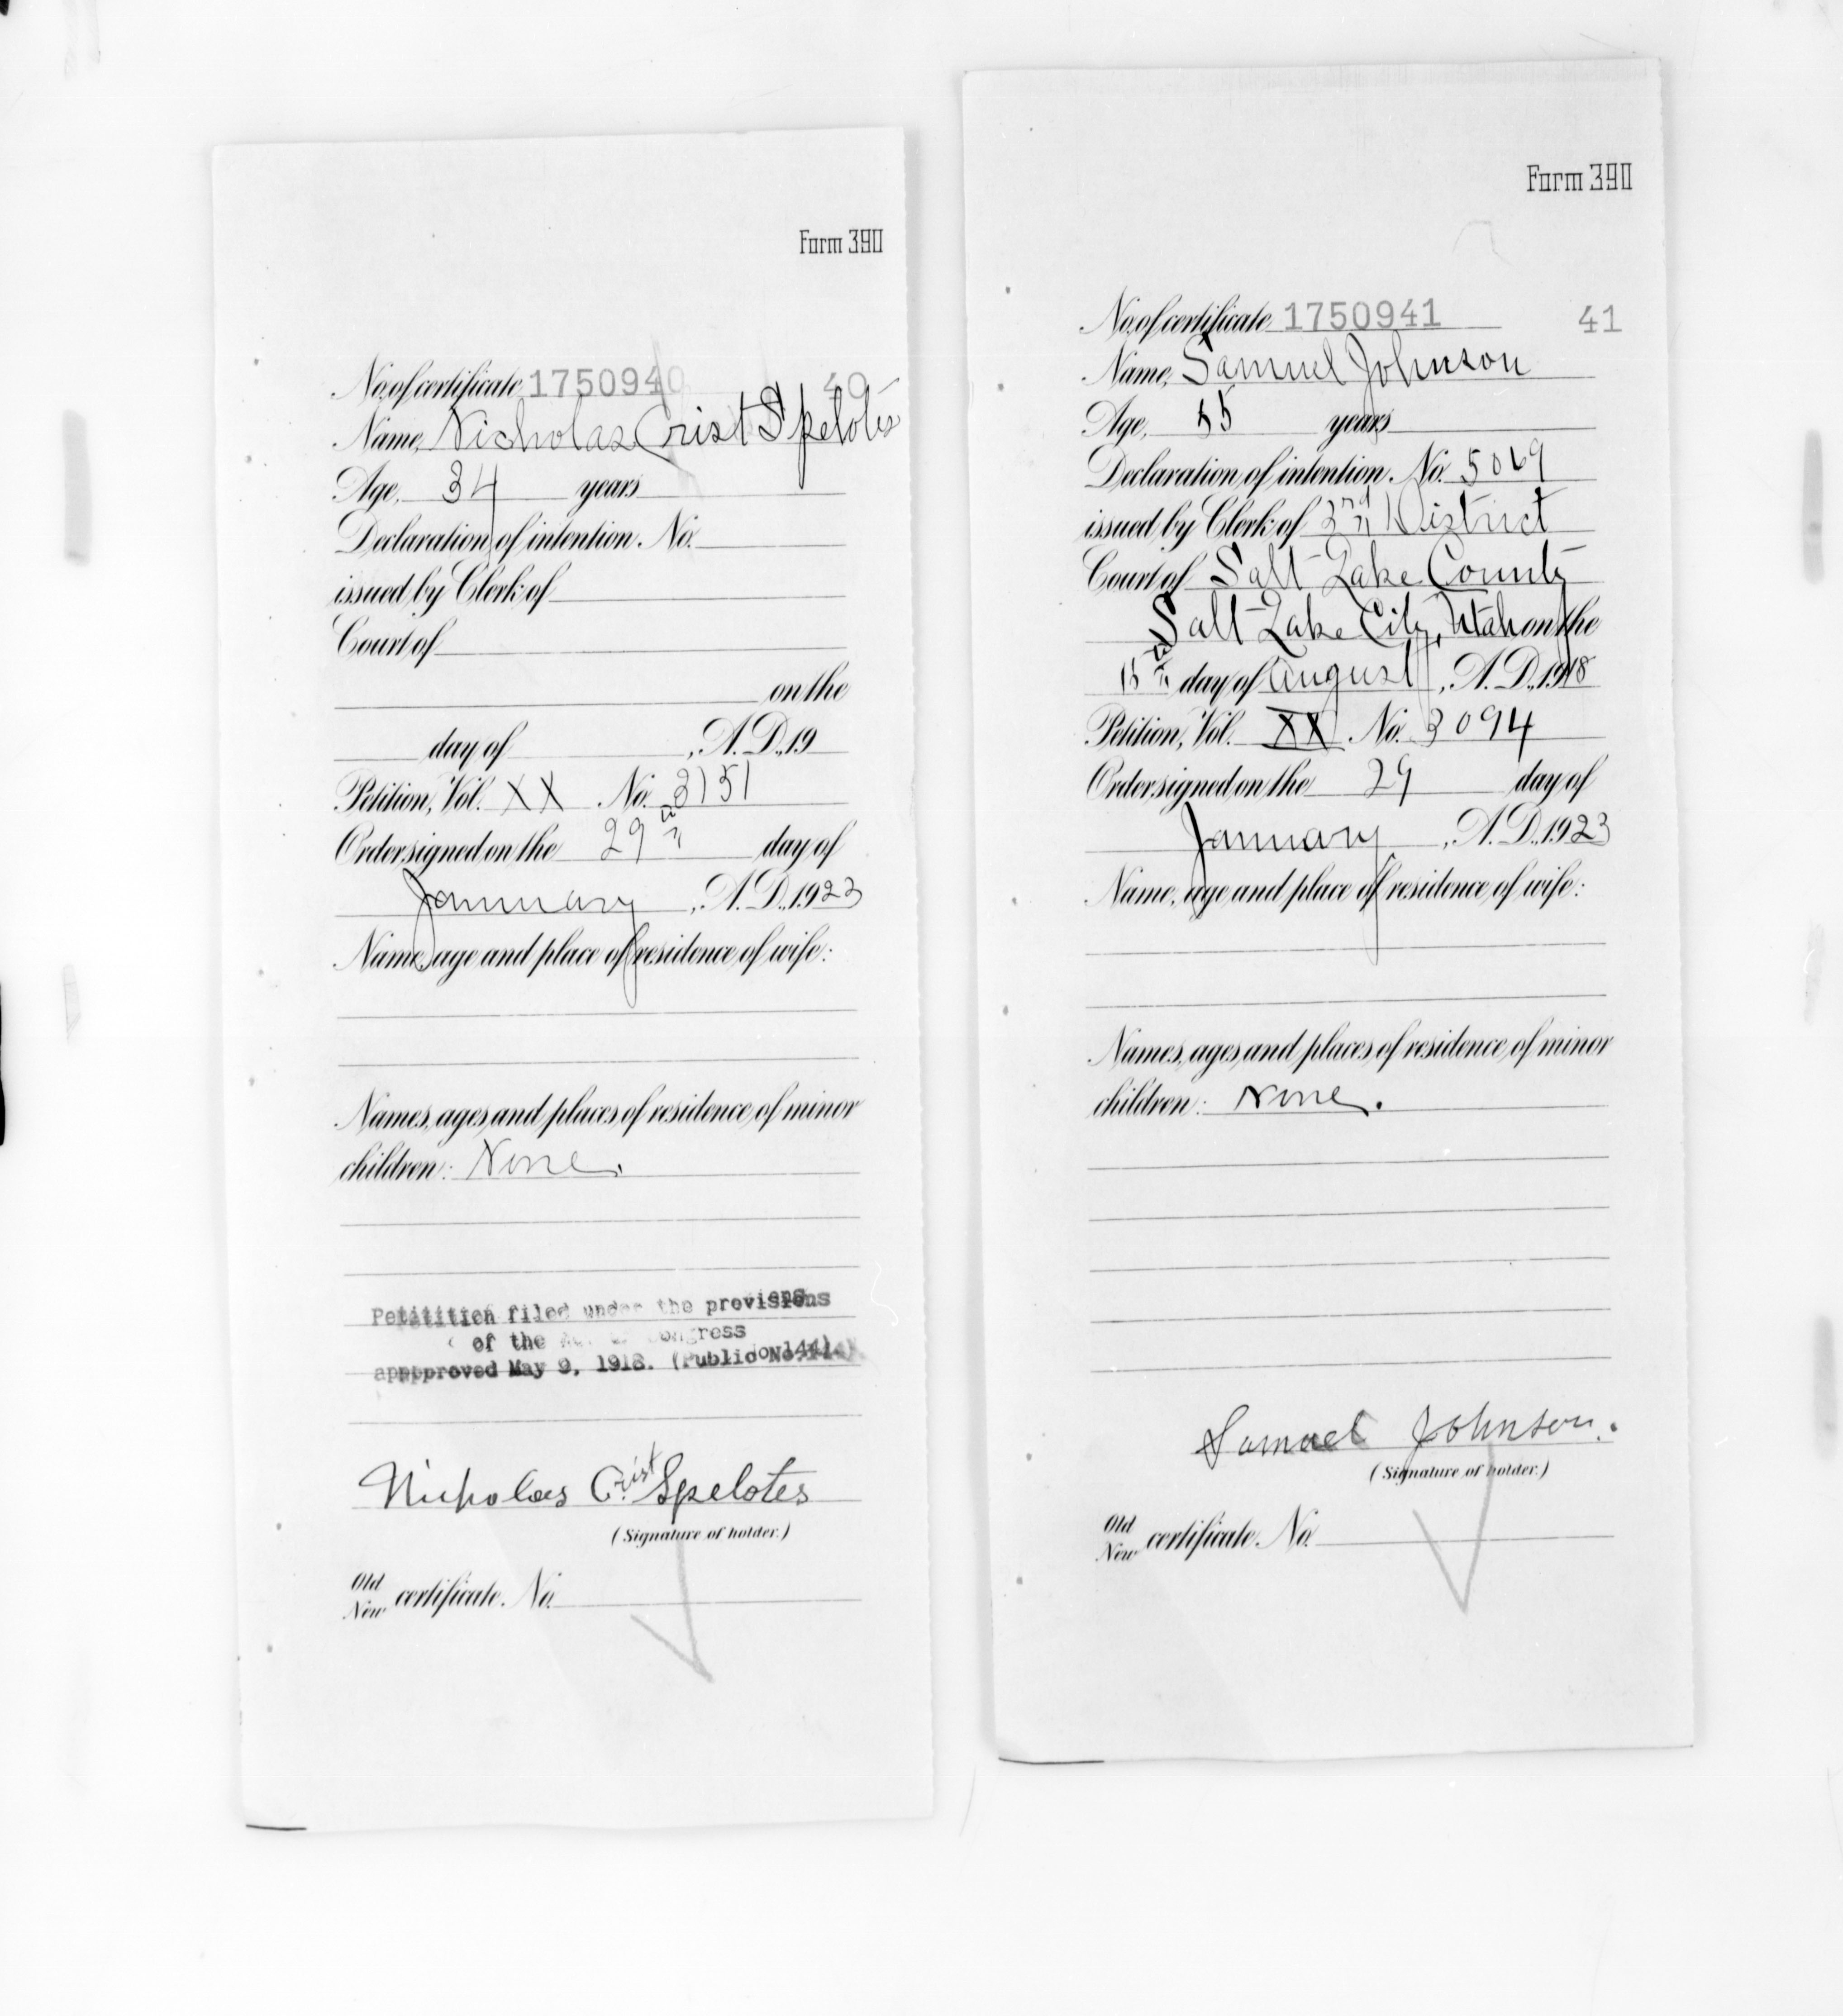 Form 390
No. of certificate 1750940 40
Name, Nicholas Crist Spelotes
Age, 34 years
Declaration of intention. No.
issued by Clerk of
Court of
on the
day of , A. D., 19
Petition, Vol. XX No. 3151
Order signed on the 29th day of
January , A. D., 1923
Name, age and place of residence of wife:
Names, ages and places of residence of minor
children: None.
Petitition filed under the provisions
of the Act of Congress
appproved May 9, 1918. (Public No. 144)
Nicholas Crist Spelotes
(Signature of holder.)
Old
New certificate. No.
Form 390
No. of certificate 1750941 41
Name, Samuel Johnson
Age, 55 years
Declaration of intention. No. 5069
issued by Clerk of 3rd District
Court of Salt Lake County
Salt Lake City, Utah on the
15th day of August , A. D., 1918
Petition, Vol. XX No. 3094
Order signed on the 29 day of
January , A. D., 1923
Name, age and place of residence of wife:
Names, ages and places of residence of minor
children: None.
Samuel Johnson.
(Signature of holder.)
Old
New certificate. No.